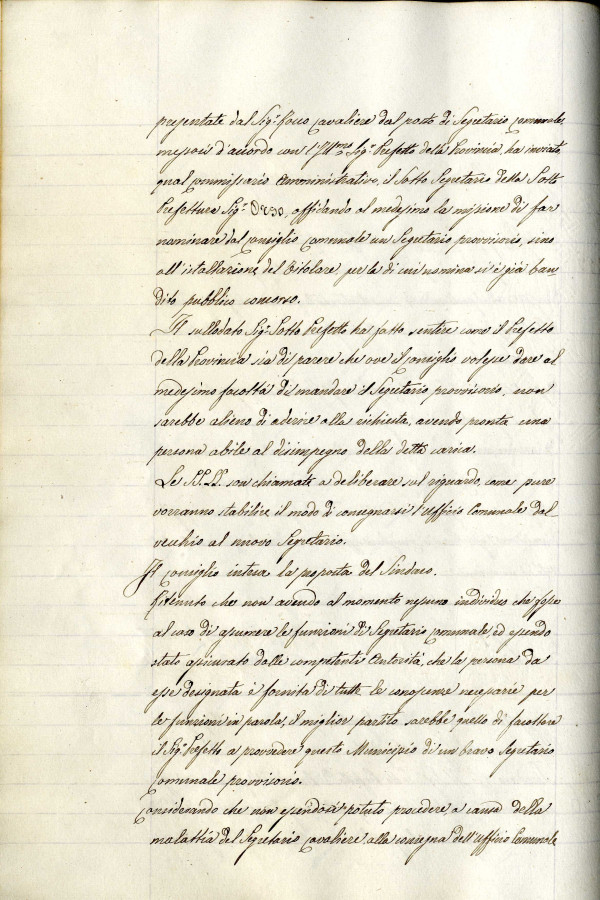 presentate dal Sig.r Foco Cavaliere dal posto di Segretario Comunale,
messosi d'accordo con l'Ill.mo Sig.r Prefetto della Provincia, ha inviato
qual Commissario Amministrativo, il Sotto Segretario della Sotto
Prefettura Sig.r affidando al medesimo la missione di far
nominare dal Consiglio Comunale un Segretario provvisorio, sino
all'istallazione del titolare, per la di cui nomina si è già ban-
dito pubblico concorso.
Il sullodato Sig.r Sotto Prefetto ha fatto sentire come il Prefetto
della Provincia sia di parere che ove il Consiglio volesse dare al
medesimo facoltà di mandare il Segretario provvisorio, non
sarebbe alieno di aderire alla richiesta, avendo pronta una
persona abile al disimpegno della detta carica.
Le SS. LL. son chiamate a deliberare sul riguardo, come pure
vorranno stabilire il modo di consegnarsi l'ufficio Comunale dal
vecchio al nuovo Segretario.
Il Consiglio intesa la proposta del Sindaco.
Ritenuto che non avendo al momento nessuno individuo che fosse
al caso di assumere le funzioni di Segretario Comunale, ed essendo
stato assicurato dalle competenti Autorità, che la persona da
esse designata è fornita di tutte le conoscenze necessarie per
le funzioni in parola, il miglior partito sarebbe quello di facoltare
il Sig.r Prefetto a provvedere questo Municipio di un bravo Segretario
Comunale provvisorio.
Considerando che non essendosi potuto procedere a causa della
malattia del Segretario Cavaliere alla consegna dell'ufficio Comunale